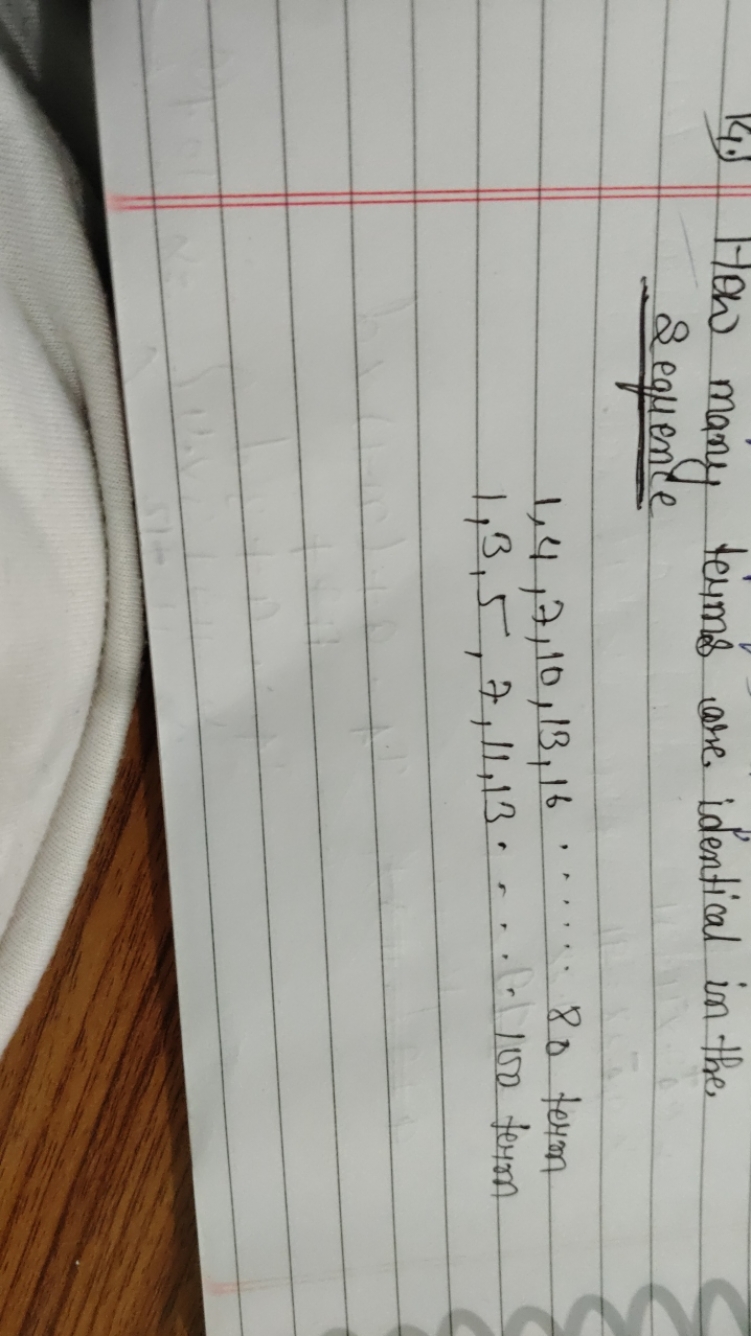 14.) How many terms are identical in the
Sequence
1, 4, 7, 10, 13, 16 ....... 80 term
1, 3, 5, 7, 11, 13 ..... 100 term